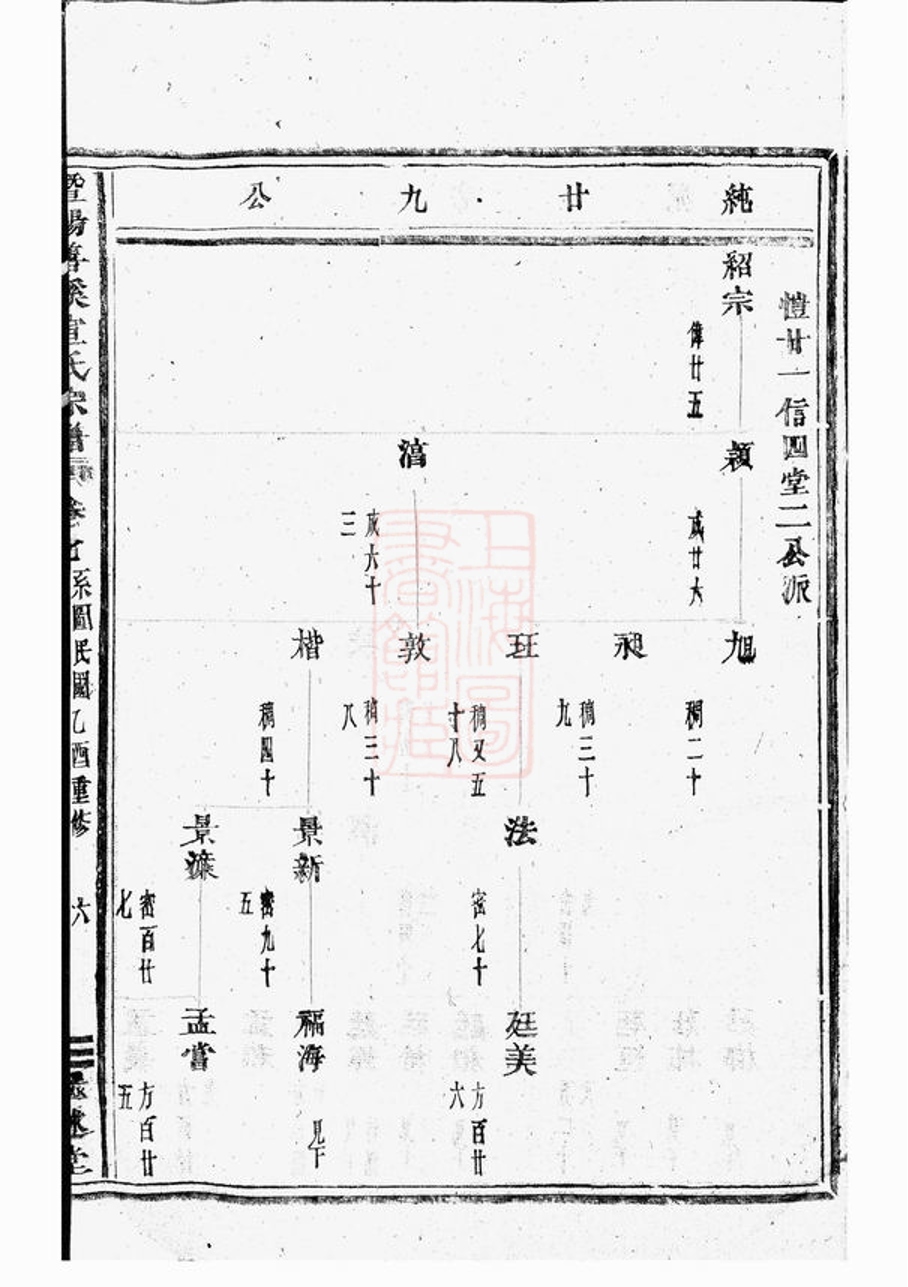 純廿九公
愷廿一信四堂二公派
紹宗
偉廿五
穎
成廿六
滈
成六十
三
旭
稠二十
昶
稠三十
九
玨
稠又五
十八
敦
稠三十
八
楷
稠四十
法
密七十
景新
密九十
五
景濂
密百廿
七
廷美
方百廿
六
福海
見下
孟嘗
方百廿
五
暨陽 溪宣氏宗譜
卷 系圖民國乙酉重修
六
上海圖書館藏